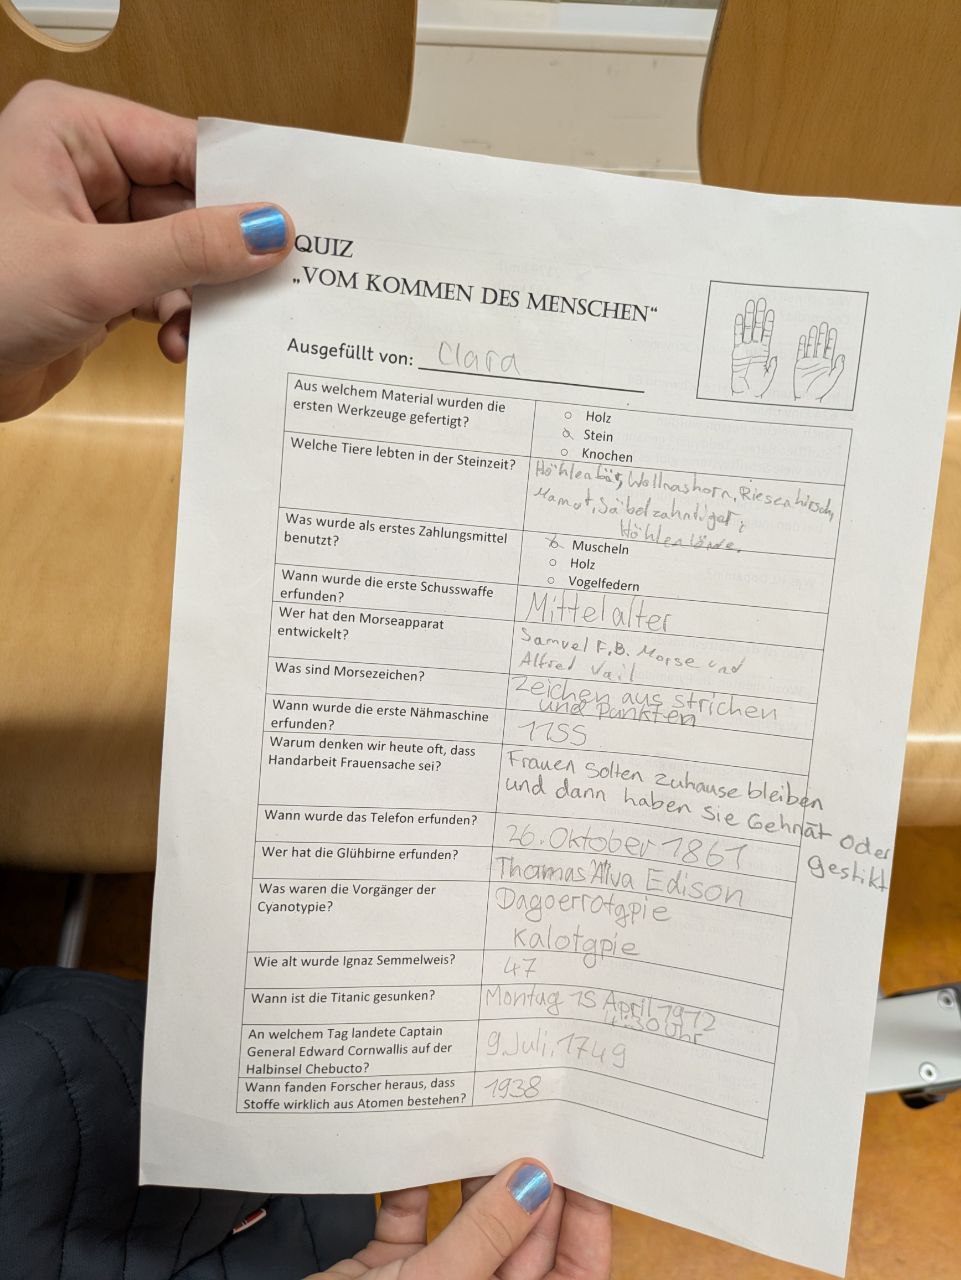 QUIZ
„VOM KOMMEN DES MENSCHEN“
Ausgefüllt von: Clara
Aus welchem Material wurden die
ersten Werkzeuge gefertigt?
Holz
Stein
Knochen
Welche Tiere lebten in der Steinzeit?
Höhlenbär, Wollnashorn, Riesenhirsch,
Mamut, Säbelzahntiger,
Höhlenlöwe.
Was wurde als erstes Zahlungsmittel
benutzt?
Muscheln
Holz
Vogelfedern
Wann wurde die erste Schusswaffe
erfunden?
Mittelalter
Wer hat den Morseapparat
entwickelt?
Samuel F.B. Morse und
Alfred Vail
Was sind Morsezeichen?
Zeichen aus strichen
und Punkten
Wann wurde die erste Nähmaschine
erfunden?
1755
Warum denken wir heute oft, dass
Handarbeit Frauensache sei?
Frauen solten zuhause bleiben
und dann haben sie Gehnät oder
gestikt
Wann wurde das Telefon erfunden?
26. Oktober 1861
Wer hat die Glühbirne erfunden?
Thomas Alva Edison
Was waren die Vorgänger der
Cyanotypie?
Dagoerrotgpie
Kalotgpie
Wie alt wurde Ignaz Semmelweis?
47
Wann ist die Titanic gesunken?
Montag 15 April 1912
4:30 Uhr
An welchem Tag landete Captain
General Edward Cornwallis auf der
Halbinsel Chebucto?
9. Juli, 1749
Wann fanden Forscher heraus, dass
Stoffe wirklich aus Atomen bestehen?
1938